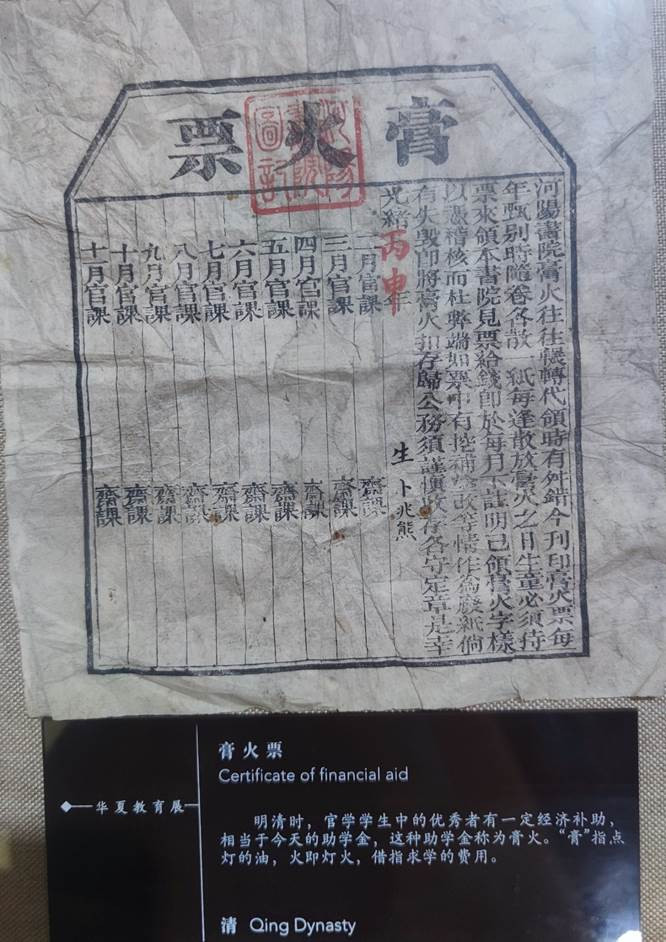 膏火票
河陽書院膏火往往輾轉代領時有舛錯今刊印膏火票每
年甄别時隨卷各散一紙每逢散放膏火之日生童必須持
票來領本書院見票給錢即於每月下註明已領膏火字樣
以憑稽核而杜弊端如票中有挖補塗改等情作為廢紙倘
有失毀即將膏火扣存歸公務須謹慎收存各守定章是幸
光緒丙申年 生 卜兆熊
二月官課 齋課
三月官課 齋課
四月官課 齋課
五月官課 齋課
六月官課 齋課
七月官課 齋課
八月官課 齋課
九月官課 齋課
十月官課 齋課
十一月官課 齋課
河陽書院圖記
华夏教育展
膏火票
Certificate of financial aid
明清时，官学学生中的优秀者有一定经济补助，
相当于今天的助学金，这种助学金称为膏火。“膏”指点
灯的油，火即灯火，借指求学的费用。
清 Qing Dynasty